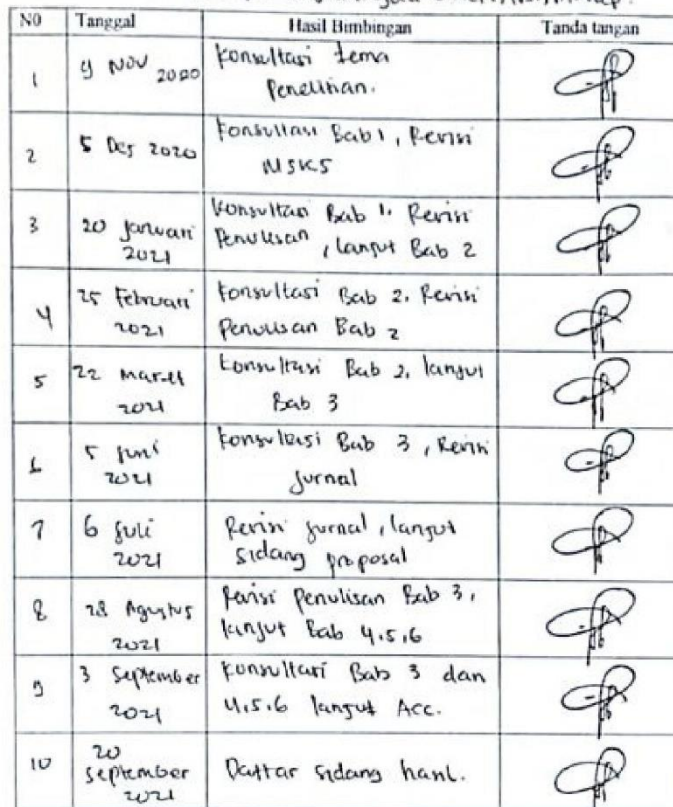 N0 Tanggal Hasil Bimbingan Tanda tangan
1 9 Nov 2020 Konsultasi tema
Penelitian.
2 5 Des 2020 Konsultasi Bab 1, Revisi
MSKS
3 20 Januari Konsultasi Bab 1. Revisi
2021 Penulisan, lanjut Bab 2
4 25 Februari Konsultasi Bab 2. Revisi
2021 Penulisan Bab 2
5 22 Maret Konsultasi Bab 2, lanjut
2021 Bab 3
6 5 Juni Konsultasi Bab 3, Revisi
2021 Jurnal
7 6 Juli Revisi Jurnal, lanjut
2021 sidang proposal
8 28 Agustus Revisi Penulisan Bab 3,
2021 lanjut Bab 4,5,6
9 3 September Konsultasi Bab 3 dan
2021 4,5,6 lanjut Acc.
10 20
September Daftar sidang hasil.
2021